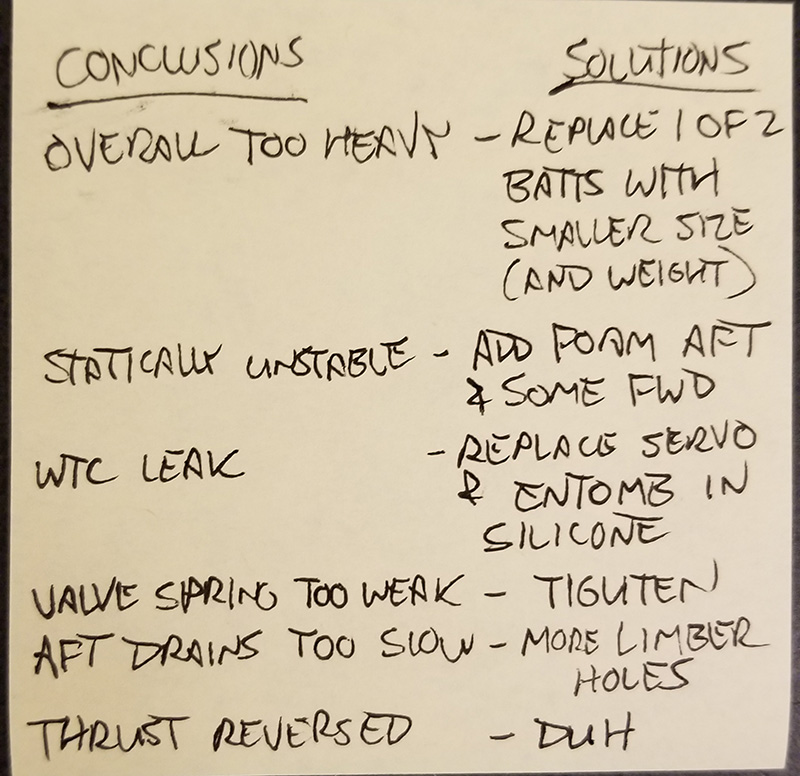 CONCLUSIONS SOLUTIONS
OVERALL TOO HEAVY - REPLACE 1 OF 2
BATTS WITH
SMALLER SIZE
(AND WEIGHT)
STATICALLY UNSTABLE - ADD FOAM AFT
& SOME FWD
WTC LEAK - REPLACE SERVO
& ENTOMB IN
SILICONE
VALVE SPRING TOO WEAK - TIGHTEN
AFT DRAINS TOO SLOW - MORE LIMBER
HOLES
THRUST REVERSED - DUH